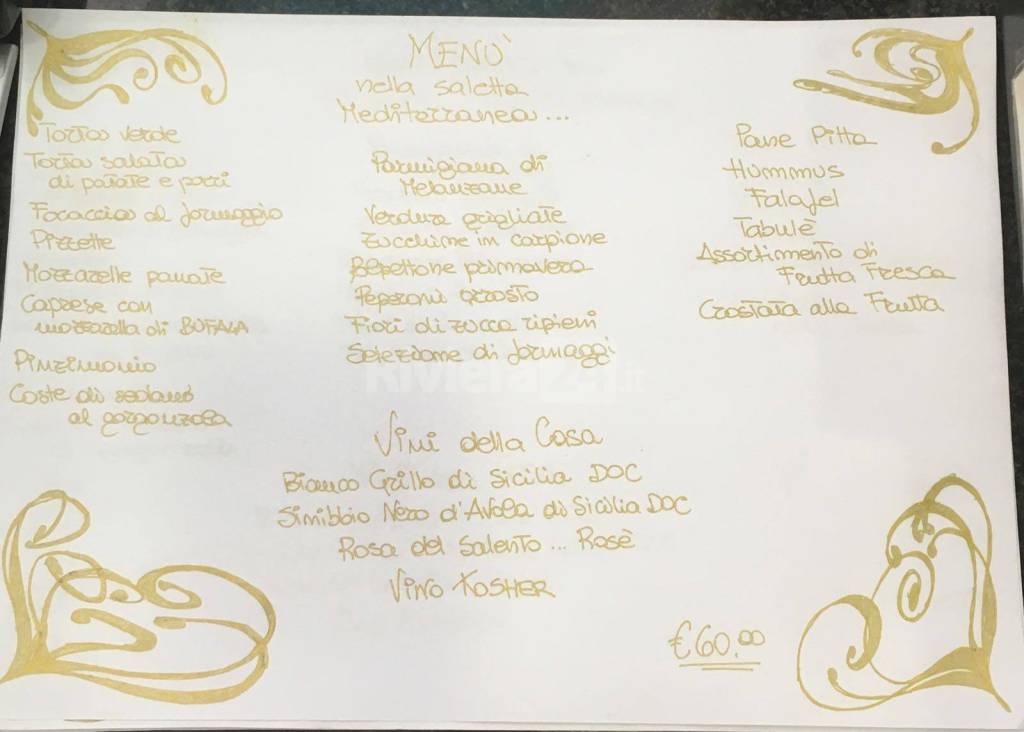 MENÙ
nella saletta
Mediterranea...
Torta verde
Torta salata
di patate e porri
Focaccia al formaggio
Pizzette
Mozzarelle panate
Caprese con
mozzarella di BUFALA
Pinzimonio
Coste di sedano
al gorgonzola
Parmigiana di
Melanzane
Verdura grigliate
Zucchine in carpione
Bepettone primavera
Peperoni arrosto
Fiori di zucca ripieni
Selezione di formaggi
Pane Pitta
Hummus
Falafel
Tabulè
Assortimento di
Frutta Fresca
Crostata alla Frutta
Riviera24.it
Vini della Casa
Bianco Grillo di Sicilia DOC
Simibbio Nero d'Avola di Sicilia DOC
Rosa del Salento... Rosè
Vino Kosher
€60,00